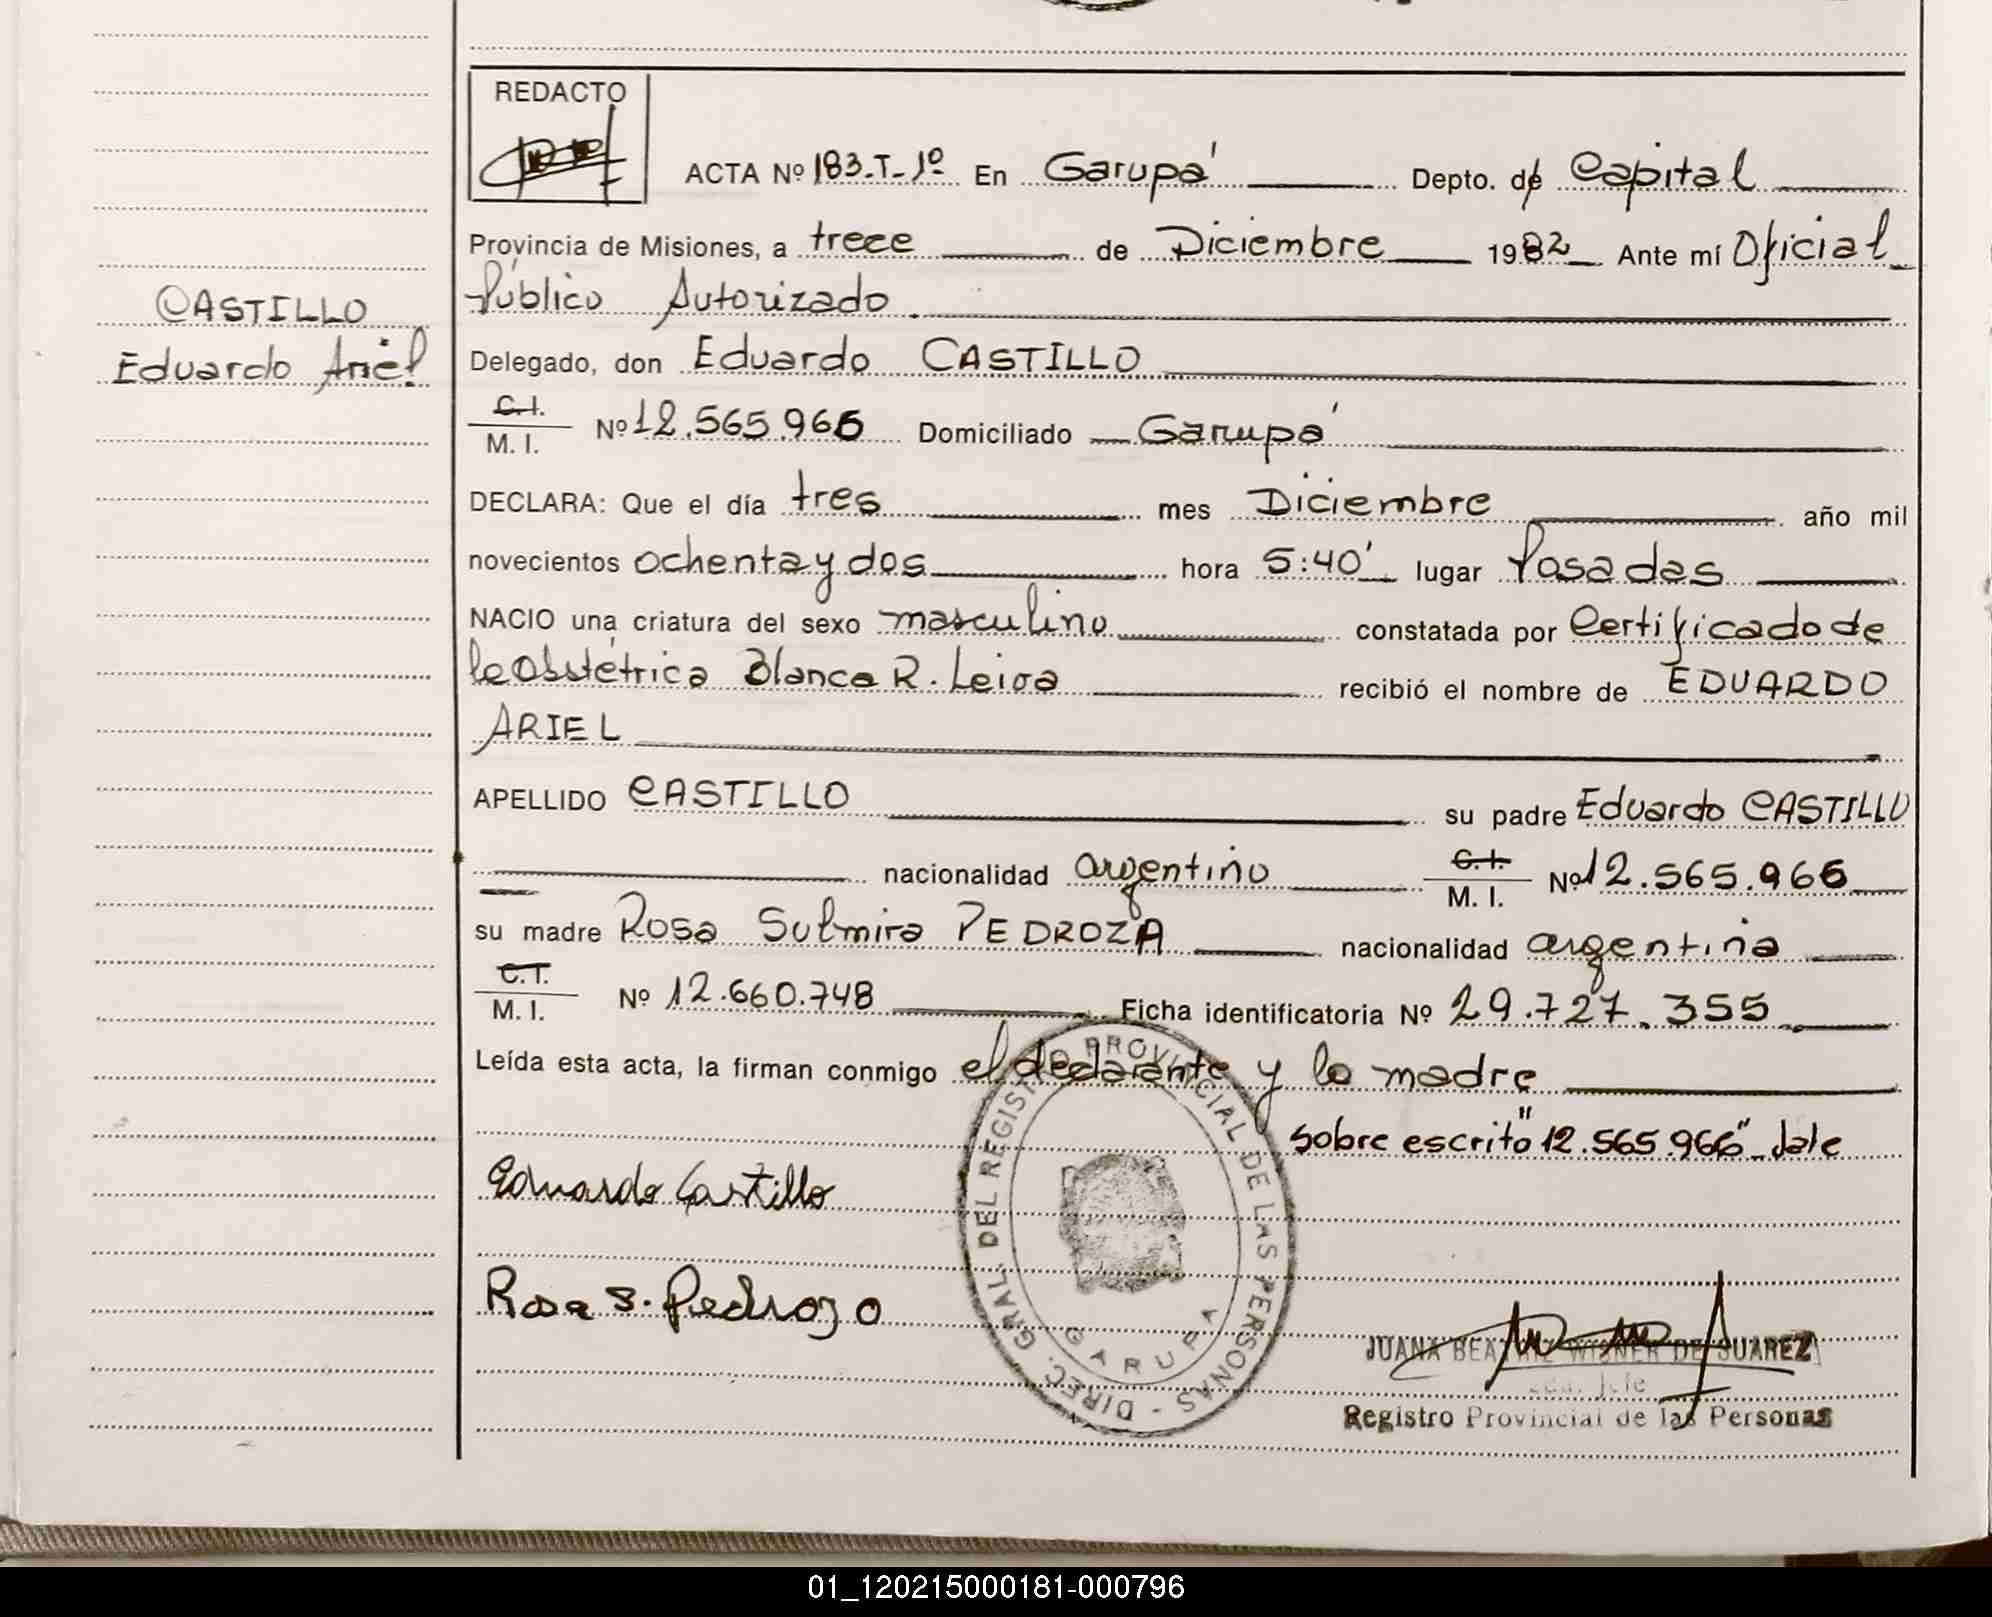 REDACTO
ACTA Nº 183-T-1º En Garupá Depto. de Capital
Provincia de Misiones, a trece de Diciembre 1982 Ante mí Oficial
Público Autorizado
CASTILLO
Eduardo Ariel
Delegado, don Eduardo CASTILLO
C.I.
M. I. Nº 12.565.966 Domiciliado Garupá
DECLARA: Que el día tres mes Diciembre año mil
novecientos ochenta y dos hora 5:40' lugar Posadas
NACIO una criatura del sexo masculino constatada por Certificado de
la Obstétrica Blanca R. Leiva recibió el nombre de EDUARDO
ARIEL
APELLIDO CASTILLO su padre Eduardo CASTILLO
nacionalidad argentino C.I. M. I. Nº 12.565.966
su madre Rosa Sulmira PEDROZA nacionalidad argentina
C.I.
M. I. Nº 12.660.748 Ficha identificatoria Nº 29.727.355
Leída esta acta, la firman conmigo el declarante y la madre
sobre escrito "12.565.966" vale
Eduardo Castillo
Rosa S. Pedrozo
DIREC. GRAL. DEL REGISTRO PROVINCIAL DE LAS PERSONAS -
GARUPA
JUANA BEATRIZ WISNER DE SUAREZ
2da. Jefe
Registro Provincial de las Personas
01_120215000181-000796